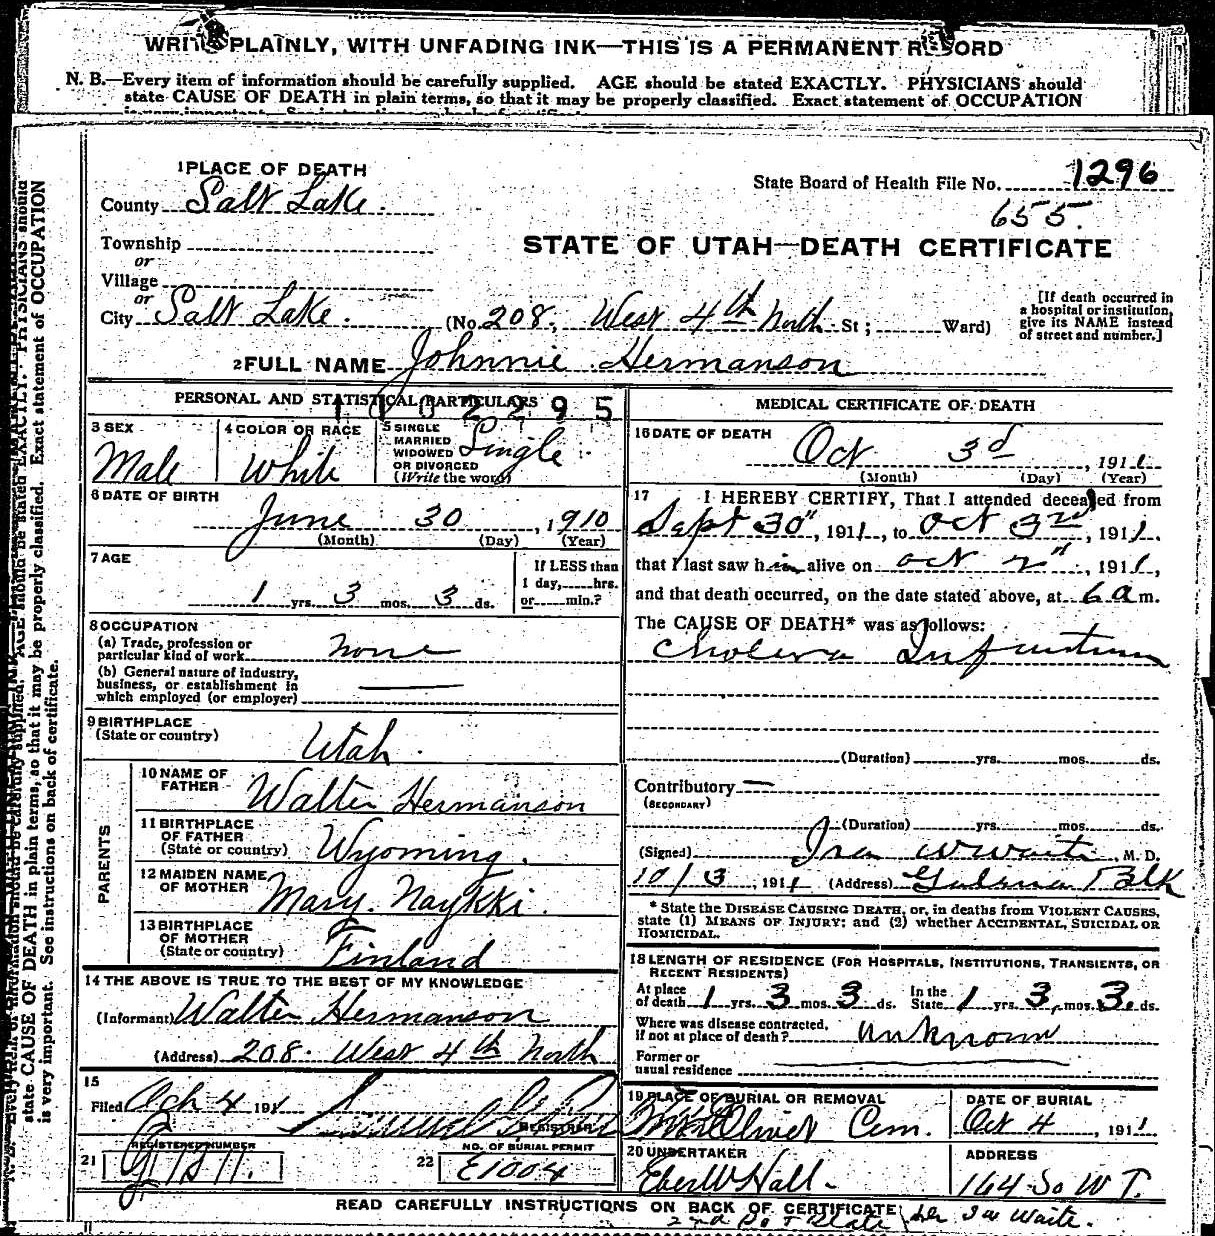 WRITE PLAINLY, WITH UNFADING INK—THIS IS A PERMANENT RECORD
N. B.—Every item of information should be carefully supplied. AGE should be stated EXACTLY. PHYSICIANS should
state CAUSE OF DEATH in plain terms, so that it may be properly classified. Exact statement of OCCUPATION
1 PLACE OF DEATH
State Board of Health File No. 1296
County Salt Lake.
655.
Township
STATE OF UTAH—DEATH CERTIFICATE
or
Village
or
City Salt Lake. (No. 208, West 4th North St; Ward)
[If death occurred in a hospital or institution, give its NAME instead of street and number.]
2 FULL NAME Johnnie Hermanson
PERSONAL AND STATISTICAL PARTICULARS
3 SEX
Male
4 COLOR OR RACE
White
5 SINGLE MARRIED WIDOWED OR DIVORCED (Write the word) Single
6 DATE OF BIRTH
June 30, 1910
(Month) (Day) (Year)
7 AGE
1 yrs. 3 mos. 3 ds.
If LESS than 1 day, hrs. or min.?
8 OCCUPATION
(a) Trade, profession or particular kind of work None
(b) General nature of industry, business, or establishment in which employed (or employer)
9 BIRTHPLACE
(State or country) Utah.
PARENTS
10 NAME OF FATHER Walter Hermanson
11 BIRTHPLACE OF FATHER (State or country) Wyoming.
12 MAIDEN NAME OF MOTHER Mary Naykki.
13 BIRTHPLACE OF MOTHER (State or country) Finland
14 THE ABOVE IS TRUE TO THE BEST OF MY KNOWLEDGE
(Informant) Walter Hermanson
(Address) 208. West 4th North
15
Filed Oct 4 191
REGISTRAR
REGISTERED NUMBER
21
NO. OF BURIAL PERMIT
22 E1004
MEDICAL CERTIFICATE OF DEATH
16 DATE OF DEATH
Oct 3d, 1911
(Month) (Day) (Year)
17 I HEREBY CERTIFY, That I attended deceased from
Sept 30", 1911, to Oct 3rd, 1911.
that I last saw him alive on Oct 2", 1911,
and that death occurred, on the date stated above, at 6 a m.
The CAUSE OF DEATH* was as follows:
Cholera Infantum
(Duration) yrs. mos. ds.
Contributory —
(SECONDARY)
(Duration) yrs. mos. ds.
(Signed) Ira W Waite, M. D.
10/3, 1911 (Address) Galena Blk
* State the DISEASE CAUSING DEATH, or, in deaths from VIOLENT CAUSES,
state (1) MEANS OF INJURY; and (2) whether ACCIDENTAL, SUICIDAL OR
HOMICIDAL.
18 LENGTH OF RESIDENCE (FOR HOSPITALS, INSTITUTIONS, TRANSIENTS, OR
RECENT RESIDENTS)
At place of death 1 yrs. 3 mos. 3 ds. In the State 1 yrs. 3 mos. 3 ds.
Where was disease contracted, if not at place of death? Unknown
Former or usual residence
19 PLACE OF BURIAL OR REMOVAL
Mt Olivet Cem.
DATE OF BURIAL
Oct 4, 1911
20 UNDERTAKER
Eber W Hall
ADDRESS
164 So W T.
READ CAREFULLY INSTRUCTIONS ON BACK OF CERTIFICATE
per I W Waite.